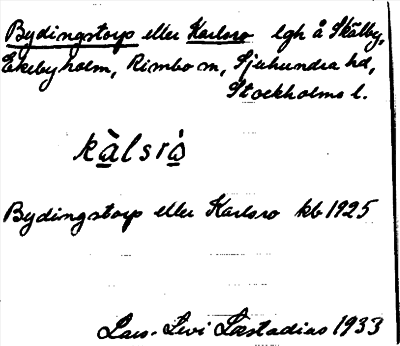 Bydingstorp eller Karlsro lgh å Skälby,
Ekebyholm, Rimbo sn, Sjuhundra hd,
Stockholms l.
kàlsrȧ
Bydingstorp eller Karlsro kb 1925
Lars-Levi Læstadius 1933